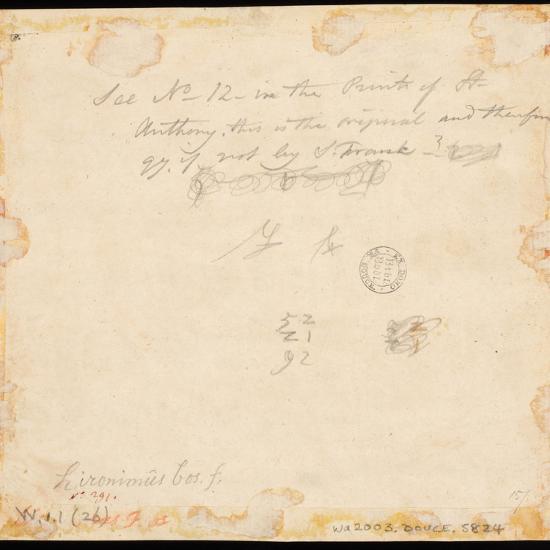 See No 12 in the Prints of St
Anthony, this is the original and therefor
qy. if not by S. Frank
52
21
92
hironimüs bos. f.
No 291.
W.1.1 (26)
15/
WA2003.DOUCE.5824